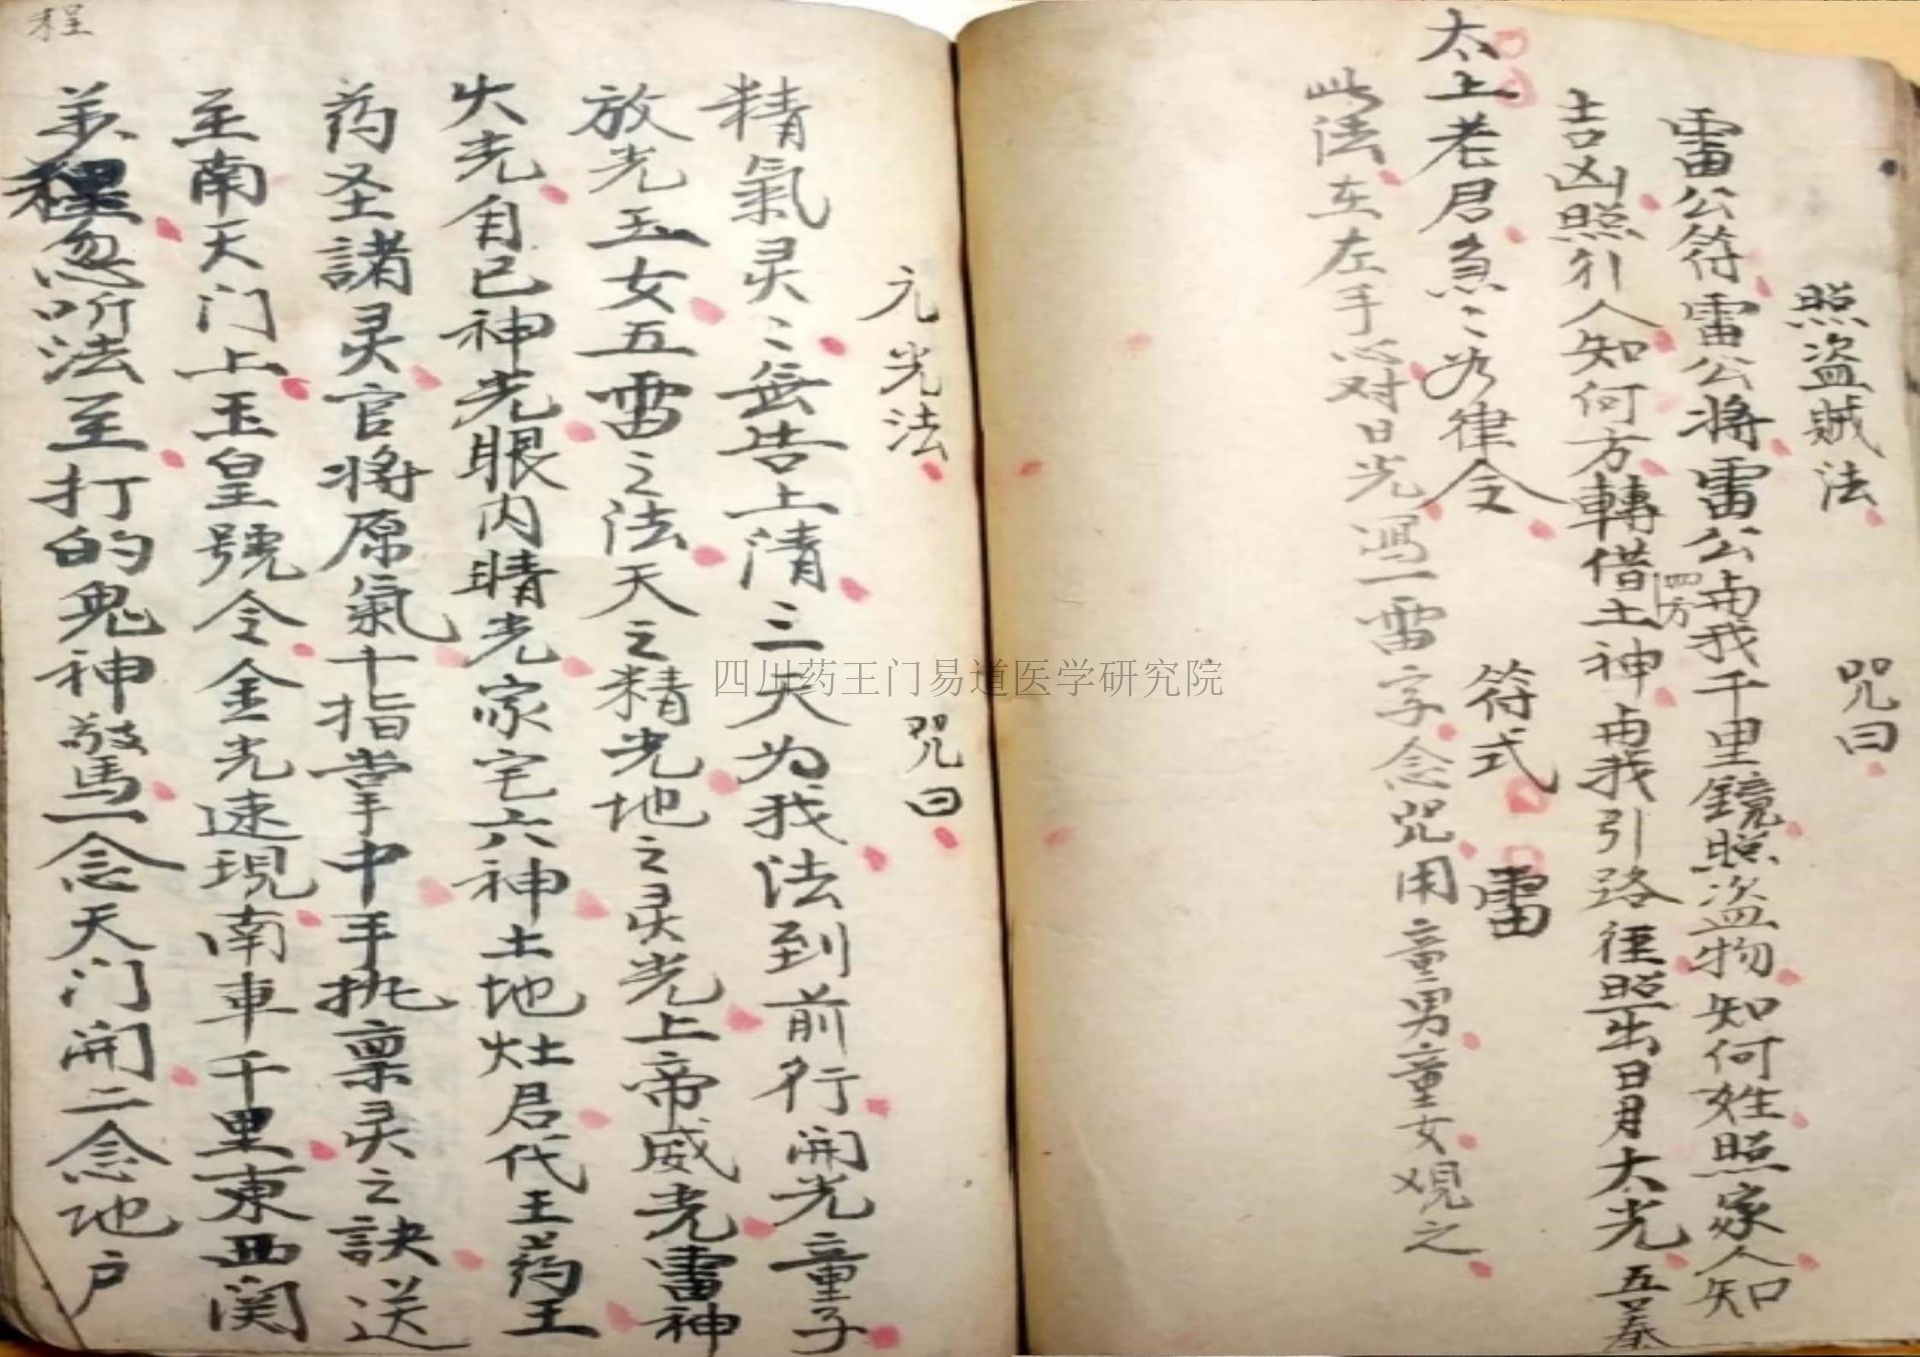 照盗贼法 咒曰
雷公符雷公将雷公與我千里鏡照盗物知何姓照家人知
吉凶照外人知何方轉借土神與我引路徑照出日月太光五
四方
太上老君急〻律令
符式 雷
此法在左手心对日光寫一雷字念咒用童男童女观之
元光法 咒曰
精氣灵〻告上清三天为我法到前行開光童子
放光玉女五雷之法天之精光地之灵光上帝威光雷神
火光自已神光眼内睛光家宅六神土地灶君代王药王
药圣諸灵官将原氣十指掌中手执稟灵之訣送
至南天门上玉皇號令金光速現南車千里東西関
忽听法至打的鬼神驚一念天门開二念地户
程
四川药王门易道医学研究院